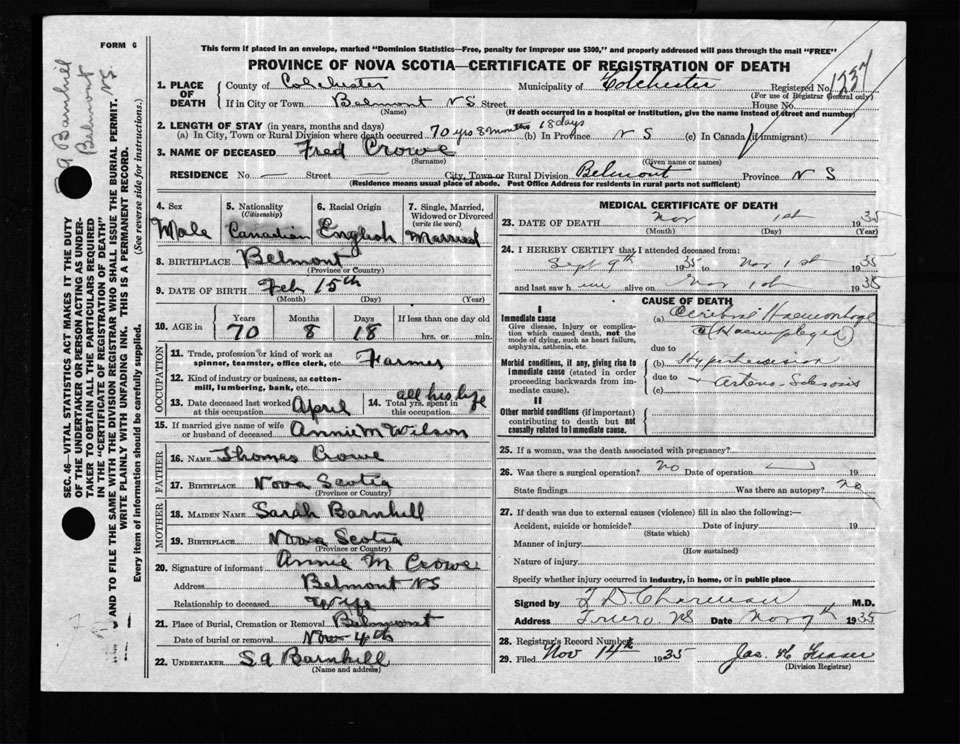 FORM 6
This form if placed in an envelope, marked "Dominion Statistics—Free, penalty for improper use $300," and properly addressed will pass through the mail "FREE"
PROVINCE OF NOVA SCOTIA—CERTIFICATE OF REGISTRATION OF DEATH
S A Barnhill
Belmont N.S.
SEC. 46—VITAL STATISTICS ACT MAKES IT THE DUTY
OF THE UNDERTAKER OR PERSON ACTING AS UNDER-
TAKER TO OBTAIN ALL THE PARTICULARS REQUIRED
IN THE "CERTIFICATE OF REGISTRATION OF DEATH"
AND TO FILE THE SAME WITH THE DIVISION REGISTRAR WHO SHALL ISSUE THE BURIAL PERMIT.
WRITE PLAINLY WITH UNFADING INK. THIS IS A PERMANENT RECORD.
Every item of information should be carefully supplied. (See reverse side for instructions.)
1. PLACE OF DEATH County of Colchester Municipality of Colchester Registered No. 1237
(For use of Registrar General only)
If in City or Town Belmont NS Street House No.
(Name) (If death occurred in a hospital or institution, give the name instead of street and number)
2. LENGTH OF STAY (in years, months and days)
(a) In City, Town or Rural Division where death occurred 70 yrs 8 months 18 days (b) In Province N S (c) In Canada (if immigrant)
3. NAME OF DECEASED Fred Crowe
(Surname) (Given name or names)
RESIDENCE No. — Street — City, Town or Rural Division Belmont Province N S
(Residence means usual place of abode. Post Office Address for residents in rural parts not sufficient)
4. Sex Male
5. Nationality (Citizenship) Canadian
6. Racial Origin English
7. Single, Married, Widowed or Divorced (write the word) Married
8. BIRTHPLACE Belmont
(Province or Country)
9. DATE OF BIRTH Feb 15th
(Month) (Day) (Year)
10. AGE in Years 70 Months 8 Days 18 If less than one day old hrs. or min.
OCCUPATION
11. Trade, profession or kind of work as spinner, teamster, office clerk, etc. Farmer
12. Kind of industry or business, as cotton-mill, lumbering, bank, etc.
13. Date deceased last worked at this occupation April
14. Total yrs. spent in this occupation all his life
15. If married give name of wife or husband of deceased Annie M Wilson
FATHER
16. NAME Thomas Crowe
17. BIRTHPLACE Nova Scotia
(Province or Country)
MOTHER
18. MAIDEN NAME Sarah Barnhill
19. BIRTHPLACE Nova Scotia
(Province or Country)
20. Signature of informant Annie M Crowe
Address Belmont NS
Relationship to deceased Wife
21. Place of Burial, Cremation or Removal Belmont
Date of burial or removal Nov 4th
22. UNDERTAKER S A Barnhill
(Name and address)
MEDICAL CERTIFICATE OF DEATH
23. DATE OF DEATH Nov 1st 1935
(Month) (Day) (Year)
24. I HEREBY CERTIFY that I attended deceased from:
Sept 9th 1935 to Nov 1st 1935
and last saw h im alive on Nov 1st 1935
CAUSE OF DEATH
I
Immediate cause
Give disease, injury or complication which caused death, not the mode of dying, such as heart failure, asphyxia, asthenia, etc.
(a) Cerebral Haemorrhage
(Haemiplegia)
due to
Morbid conditions, if any, giving rise to immediate cause (stated in order proceeding backwards from immediate cause).
(b) Hypertension
due to + Arterio-Sclerosis
(c)
II
Other morbid conditions (if important) contributing to death but not causally related to immediate cause.
25. If a woman, was the death associated with pregnancy?
26. Was there a surgical operation? no Date of operation 19
State findings Was there an autopsy? no
27. If death was due to external causes (violence) fill in also the following:—
Accident, suicide or homicide? Date of injury 19
(State which)
Manner of injury
(How sustained)
Nature of injury
Specify whether injury occurred in industry, in home, or in public place
Signed by M.D.
Address Truro NS Date Nov 1935
28. Registrar's Record Number
29. Filed Nov 14th 1935 Jas. H Fraser
(Division Registrar)